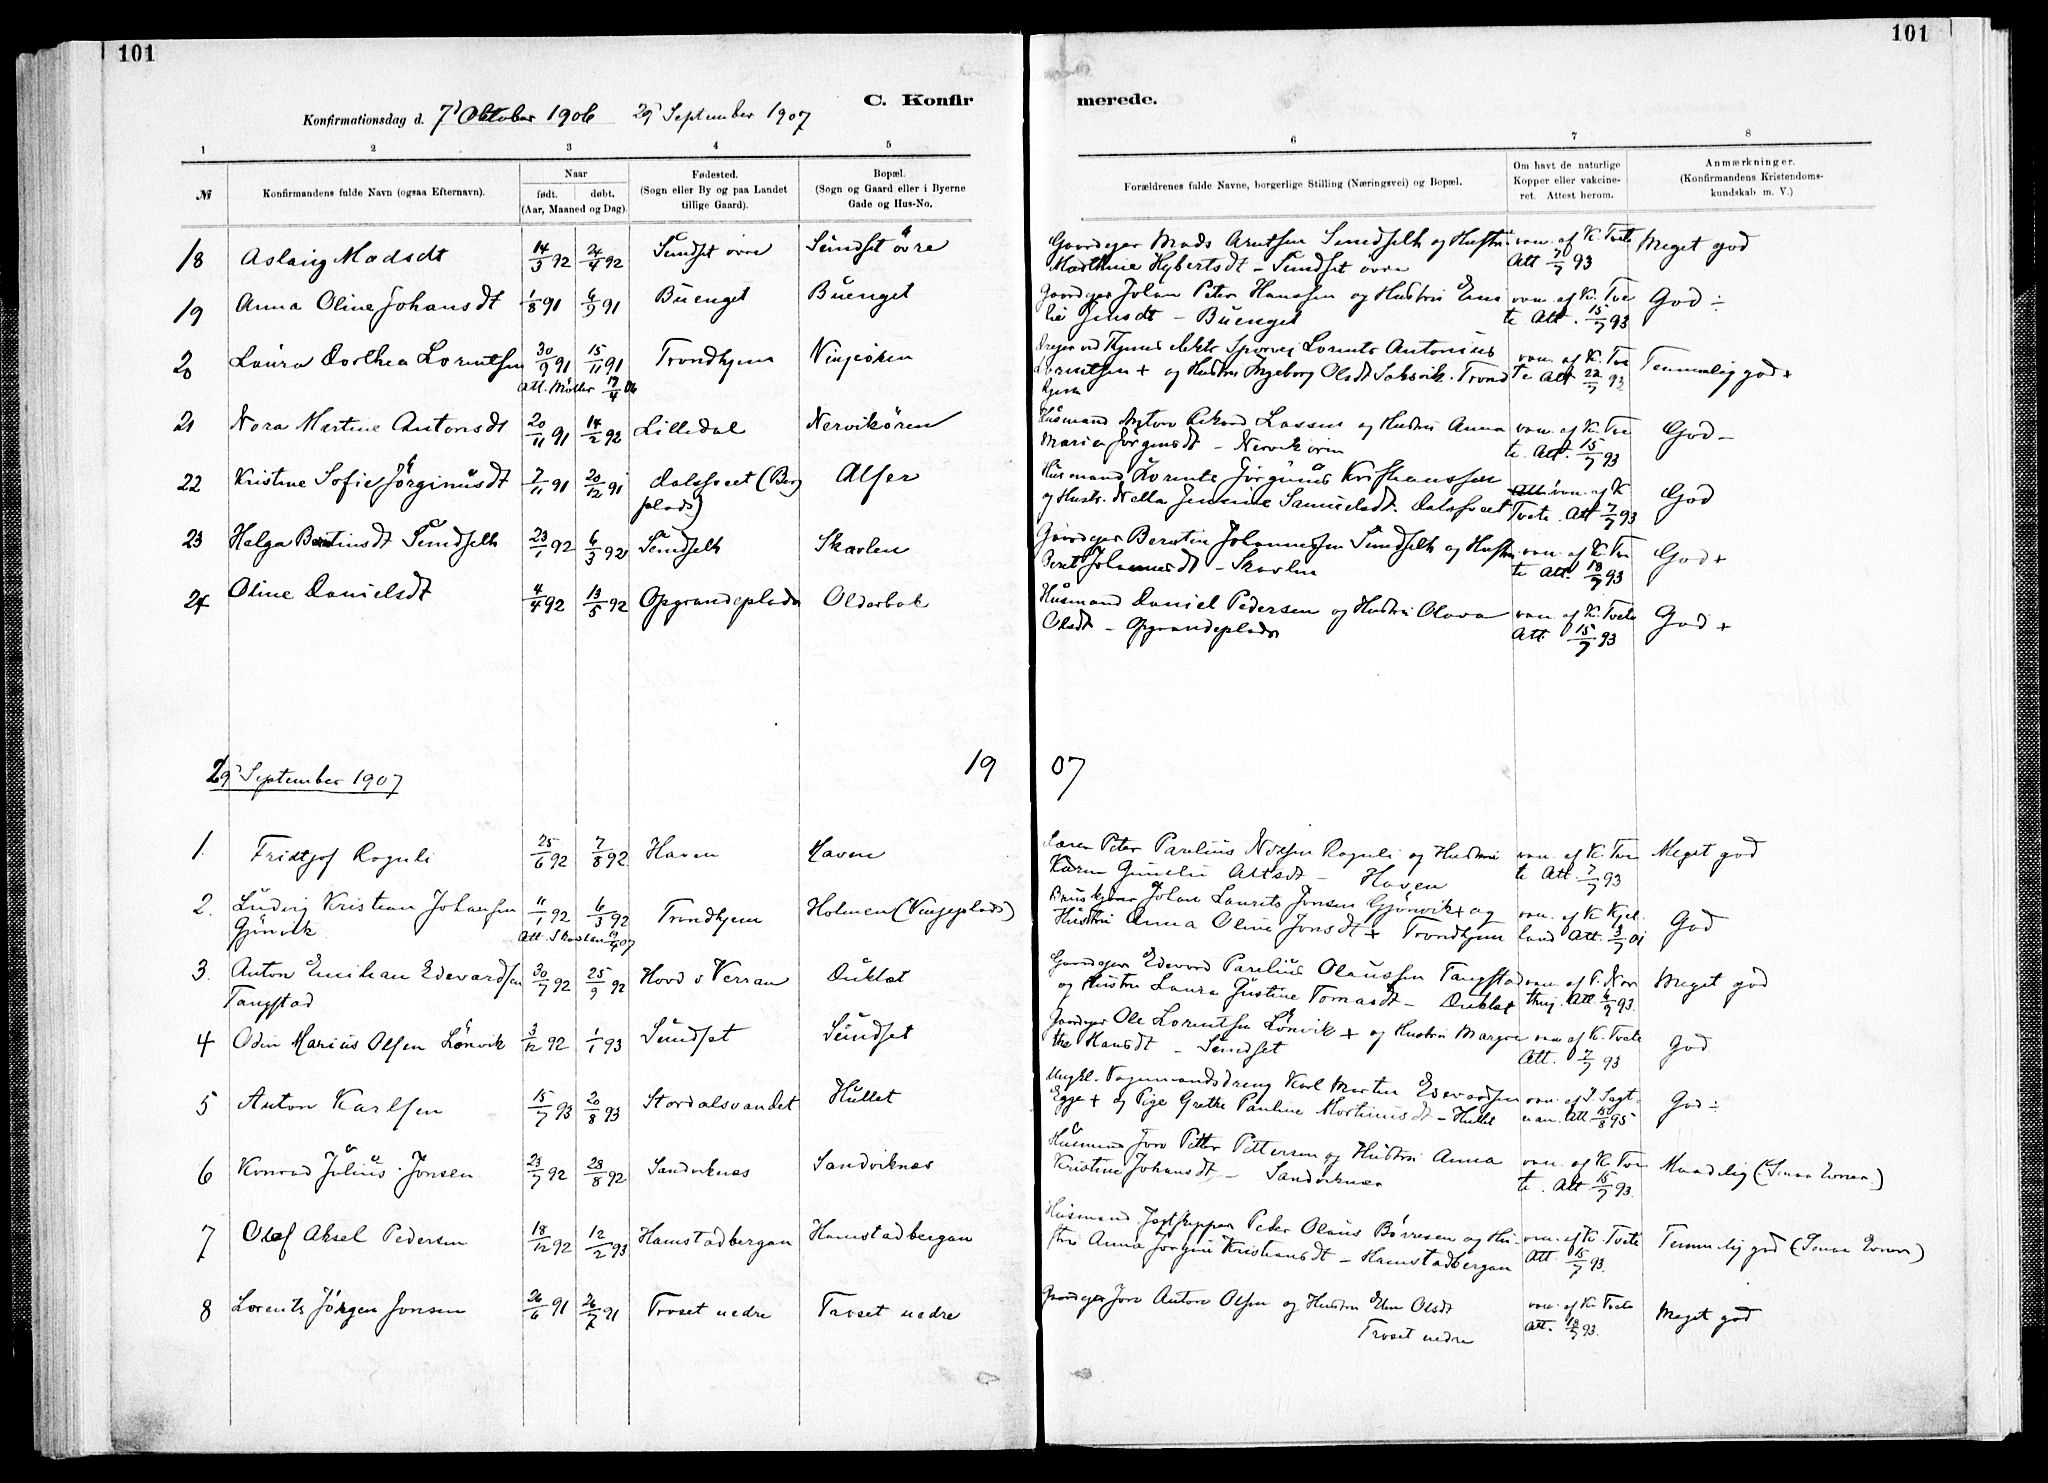 101
101
C. Konfir
merede.
Konfirmationsdag d. 7d Oktober 1906 29d September 1907
1 2 3 4 5
6 7 8
№
Konfirmandens fulde Navn (ogsaa Efternavn).
Naar
født. døbt.
(Aar, Maaned og Dag).
Fødested.
(Sogn eller By og paa Landet
tillige Gaard).
Bopæl.
(Sogn og Gaard eller i Byerne
Gade og Hus-No.
Forældrenes fulde Navne, borgerlige Stilling (Næringsvei) og Bopæl.
Om havt de naturlige
Kopper eller vakcine-
ret. Attest herom.
Anmærkninger.
(Konfirmandens Kristendoms-
kundskab m. V.)
18 Aslaug Madsdt 14/3 92 24/4 92 Sundset övre Sundset övre
Gaardeger Mads Arntsen Sundseth og Hustru vac. af K. Tvete Meget god
Marthine Hybertsdt - Sundset övre Att 7/7 93
19 Anna Oline Johansdt 1/8 91 6/9 91 Buenget Buenget
Gaardeger Johan Peter Hanssen og Hustru Eme vac. af K. Tve God ÷
lie Jensdt - Buenget te Att. 15/7 93
20 Laura Dorthea Lorentsen 30/9 91 15/11 91 Trondhjem Vinjeören
Att. Möller 19/4 06
Lorents Antonius vac. af K. Tve
Lorentsen + og Hustru Ingeborg Olsdt Saksvik. Trond te Att 22/7 93 Temmelig god +
hjem
21 Nora Martine Antonsdt 20/11 91 14/2 92 Lilledal Nervikören
Husmand Lassen og Hustru Anna vac. af K. Tve God -
Maria Jörgensdt - Nervikören te. Att. 15/7 93
22 Kristine Sofie Jörginusdt 7/11 91 20/12 91 dalsveet (Berg Alser
plads)
Husmand Lorents Jörginus Kristianssen Att vac. af K God
og Hustr. Nella Jensine Samuelsdt. Dalsveet Tvete. Att 7/7 93
23 Helga Berntinsdt Sundseth 23/1 92 6/3 92 Sundseth Skavlen
Gaardeger Berntin Johannessen Sundseth og Hustru vac. af K. Tve God +
Beret Johannesdt - Skavlen te Att. 18/7 93
24 Oline Danielsdt 4/4 92 13/5 92 Opgrandeplads Olderbak
Husmand Daniel Pedersen og Hustru Olava vac. af K. Tvete God +
Olsdt - Opgrandeplads Att. 15/7 93
29d September 1907
19 07
1. Fridtjof Rognli 25/6 92 7/8 92 Haven Haven
Lærer Peter Parelius Rognli og Hustru vac. af K. Tve Meget god
Karen Gunelie - Haven te Att. 7/7 93
2. Ludvig Kristian Johansen 11/1 92 6/3 92 Trondhjem Holmen (Vinjeplads)
Gjönvik Att. Skavlan 19/4 07
Johan Laurits Jonsen Gjönvik + og vac. af K Kjel God
Hustru Anna Oline Jonsdt + Trondhjem land Att. 3/7 01
3. Anton Emilian Edevardsen 30/7 92 25/9 92 Hovd s Verran Duklæt
Tangstad
Gaardeger Edevard Parelius Olaussen Tangstad vac. af P. Nor Meget god
og Hustru Laura Gustine Tomasdt - Duklæt thug. Att. 6/9 93
4 Odin Marius Olsen Lönvik 3/12 92 1/1 93 Sundset Sundset
Gaardeger Ole Lorentsen Lönvik + og Hustru Margre vac. af K. Tvete God
the Hansdt - Sundset Att. 7/7 93
5 Anton Karlsen 15/7 93 20/8 93 Stordalsvandet Hullet
Ungkl. Vognmandsdreng Karl Martin Edevardsen vac. af J. Sagt- God ÷
Egge + og Pige Grethe Pauline Martinusdt - Hullet man. Att. 10/8 95
6 Konrad Julius Jonsen 23/7 92 28/8 92 Sandviknes Sandviknes
Husmand Jon Petter Pettersen og Hustru Anna vac. af K. Tve Maadelig (Smaa Evner.)
Kristine Johansdt, - Sandviknes te. Att 15/7 93.
7 Olaf Aksel Pedersen 18/12 92 12/2 93 Hamstadbergan Hamstadbergan
Husmand Jagtskipper Peder Olaus Börresen og Hu- vac. af K. Tvete Temmelig god (Smaa Evner)
stru Anna Jörgine Kristiansdt - Hamstadbergan Att. 15/7 93.
8 Lorents Jörgen Jonsen 26/6 91 26/7 91 Troset nedre Troset nedre
Gaardeger Jon Anton Olsen og Hustru Elen Olsdt vac. af K. Tvete Meget god
Troset nedre Att. 18/7 93.